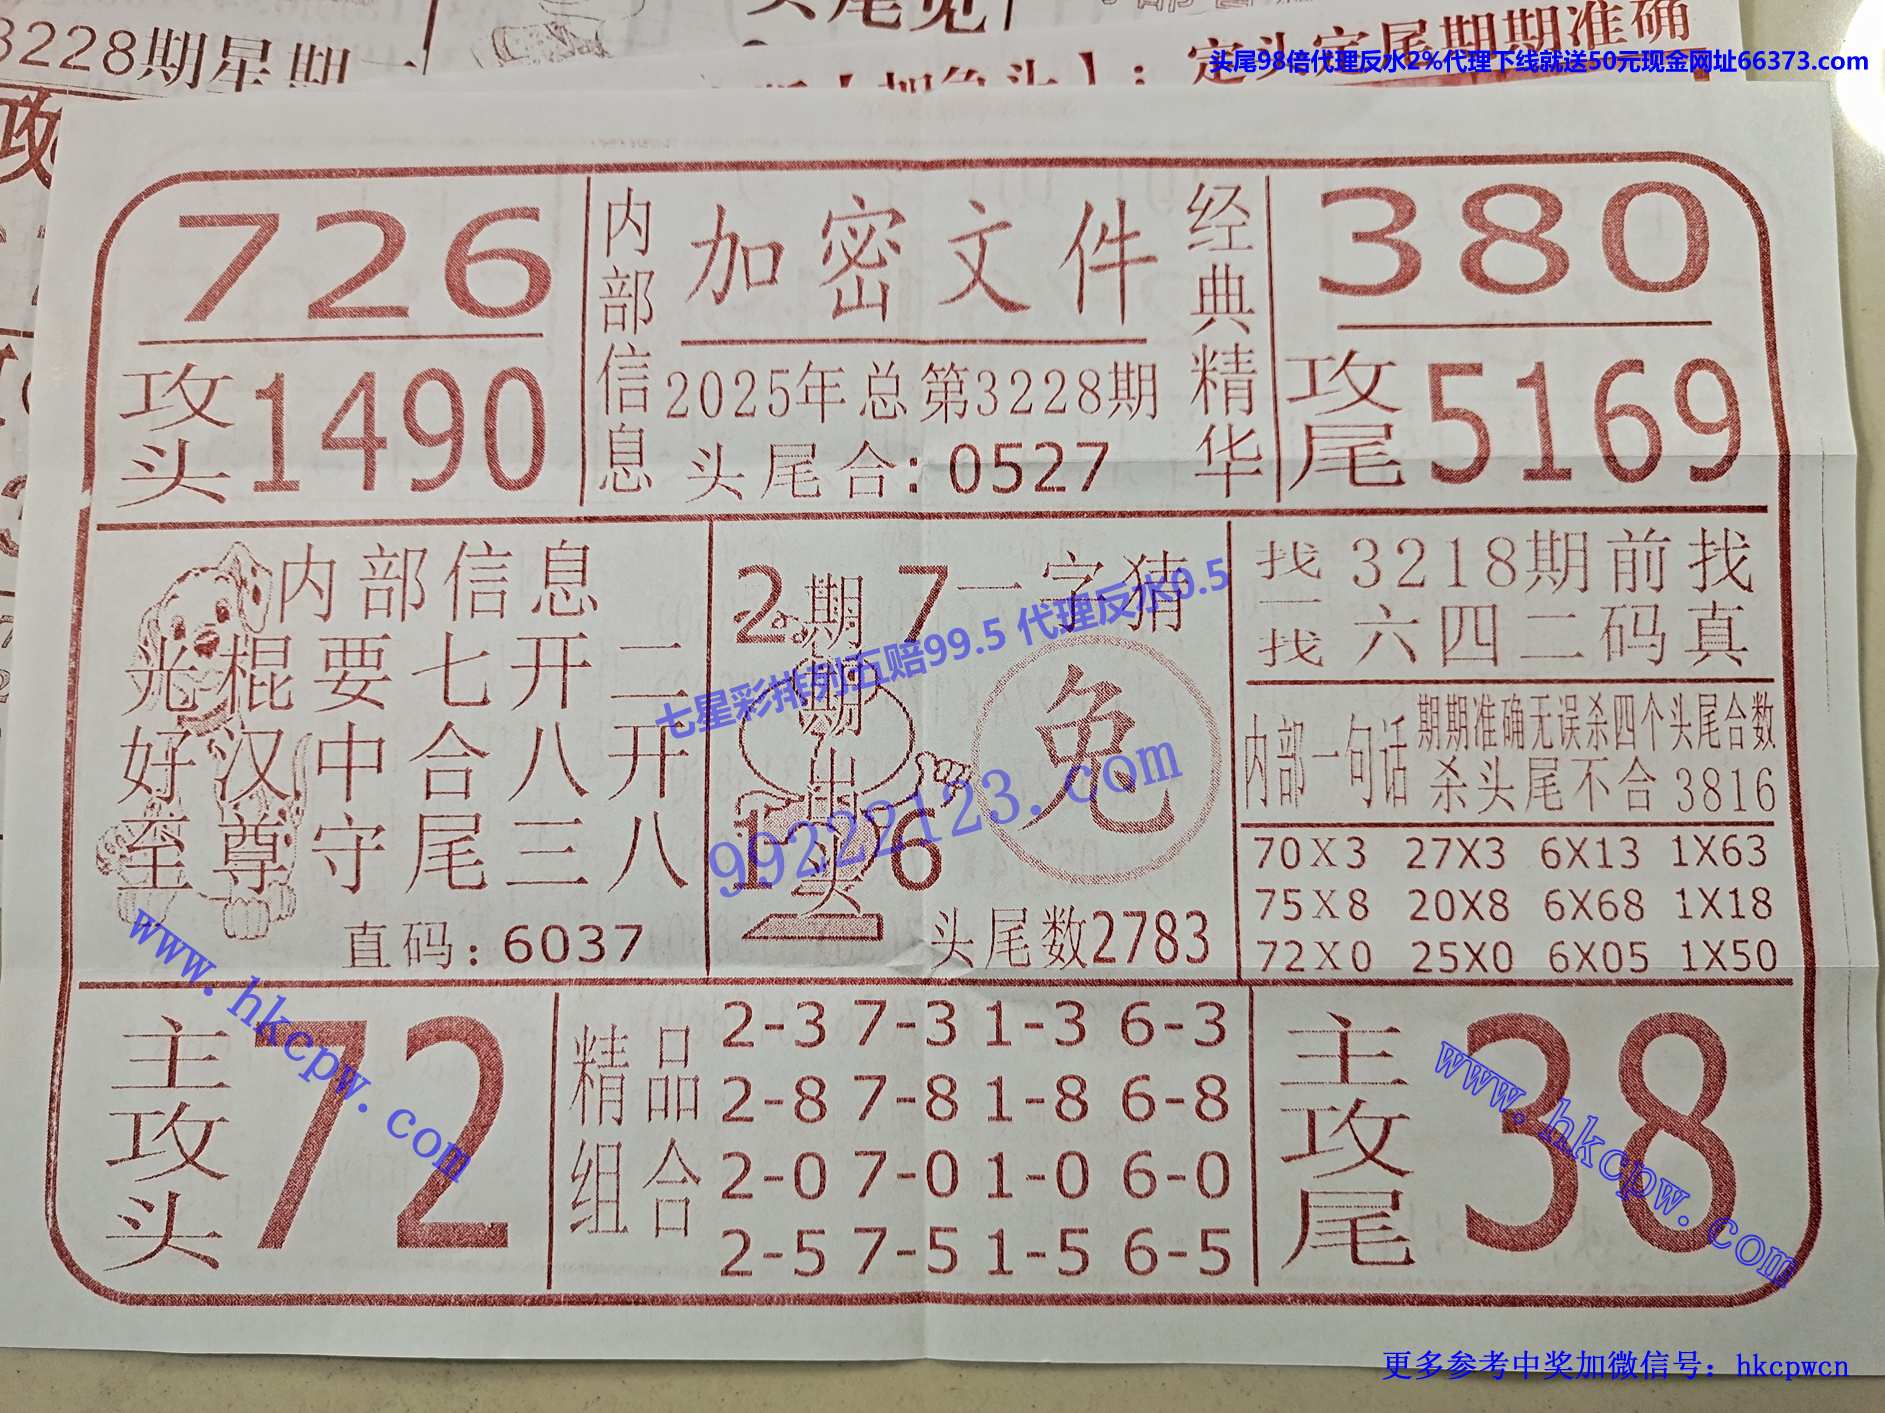 头尾98倍代理反水2%代理下线就送50元现金网址66373.com
3228期星期一
头尾
定头定尾期期准确
攻
726
攻头 1490
内部信息
加密文件
2025年总第3228期
头尾合:0527
经典精华
380
攻尾 5169
内部信息
光棍要七开二
好汉中合八开
至尊守尾三八
直码:6037
2 7
1 6
期期出头
一字猜
兔
头尾数2783
找一找
3218期前找
六四二码真
内部一句话
期期准确无误杀四个头尾合数
杀头尾不合 3816
70X3 27X3 6X13 1X63
75X8 20X8 6X68 1X18
72X0 25X0 6X05 1X50
主攻头 72
精品组合
2-3 7-3 1-3 6-3
2-8 7-8 1-8 6-8
2-0 7-0 1-0 6-0
2-5 7-5 1-5 6-5
主攻尾 38
七星彩排列五赔99.5 代理反水0.5
99222123.com
www.hkcpw.com
www.hkcpw.com
更多参考中奖加微信号：hkcpwcn